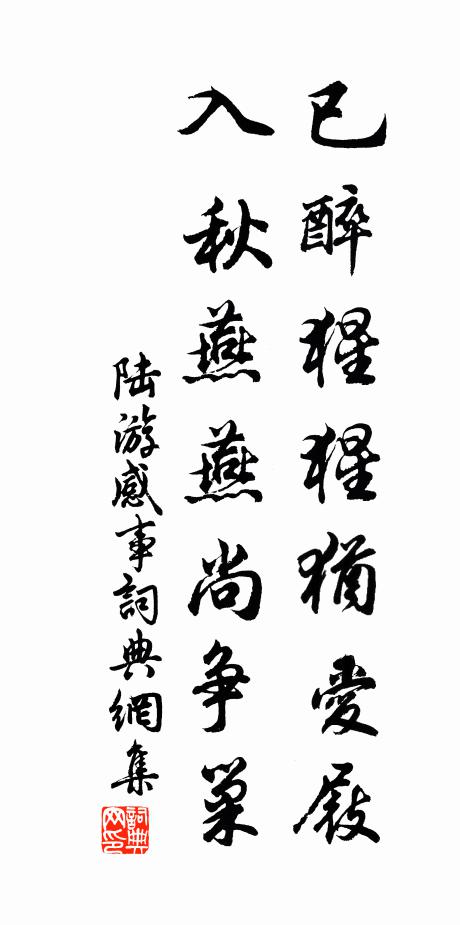 已醉猩猩猶愛屐
入秋燕燕尚争巢
陆游感事詞典網集
詞典网印